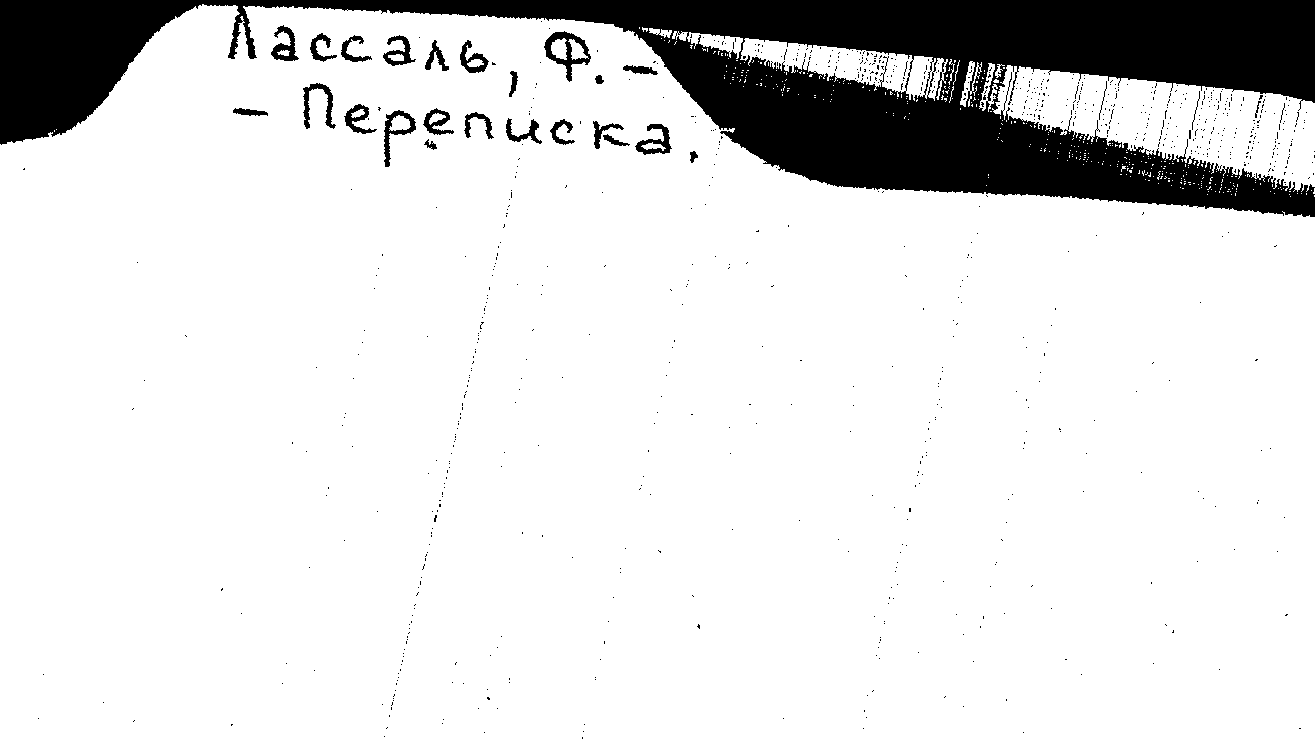 Лассаль, Ф. –
– Переписка.